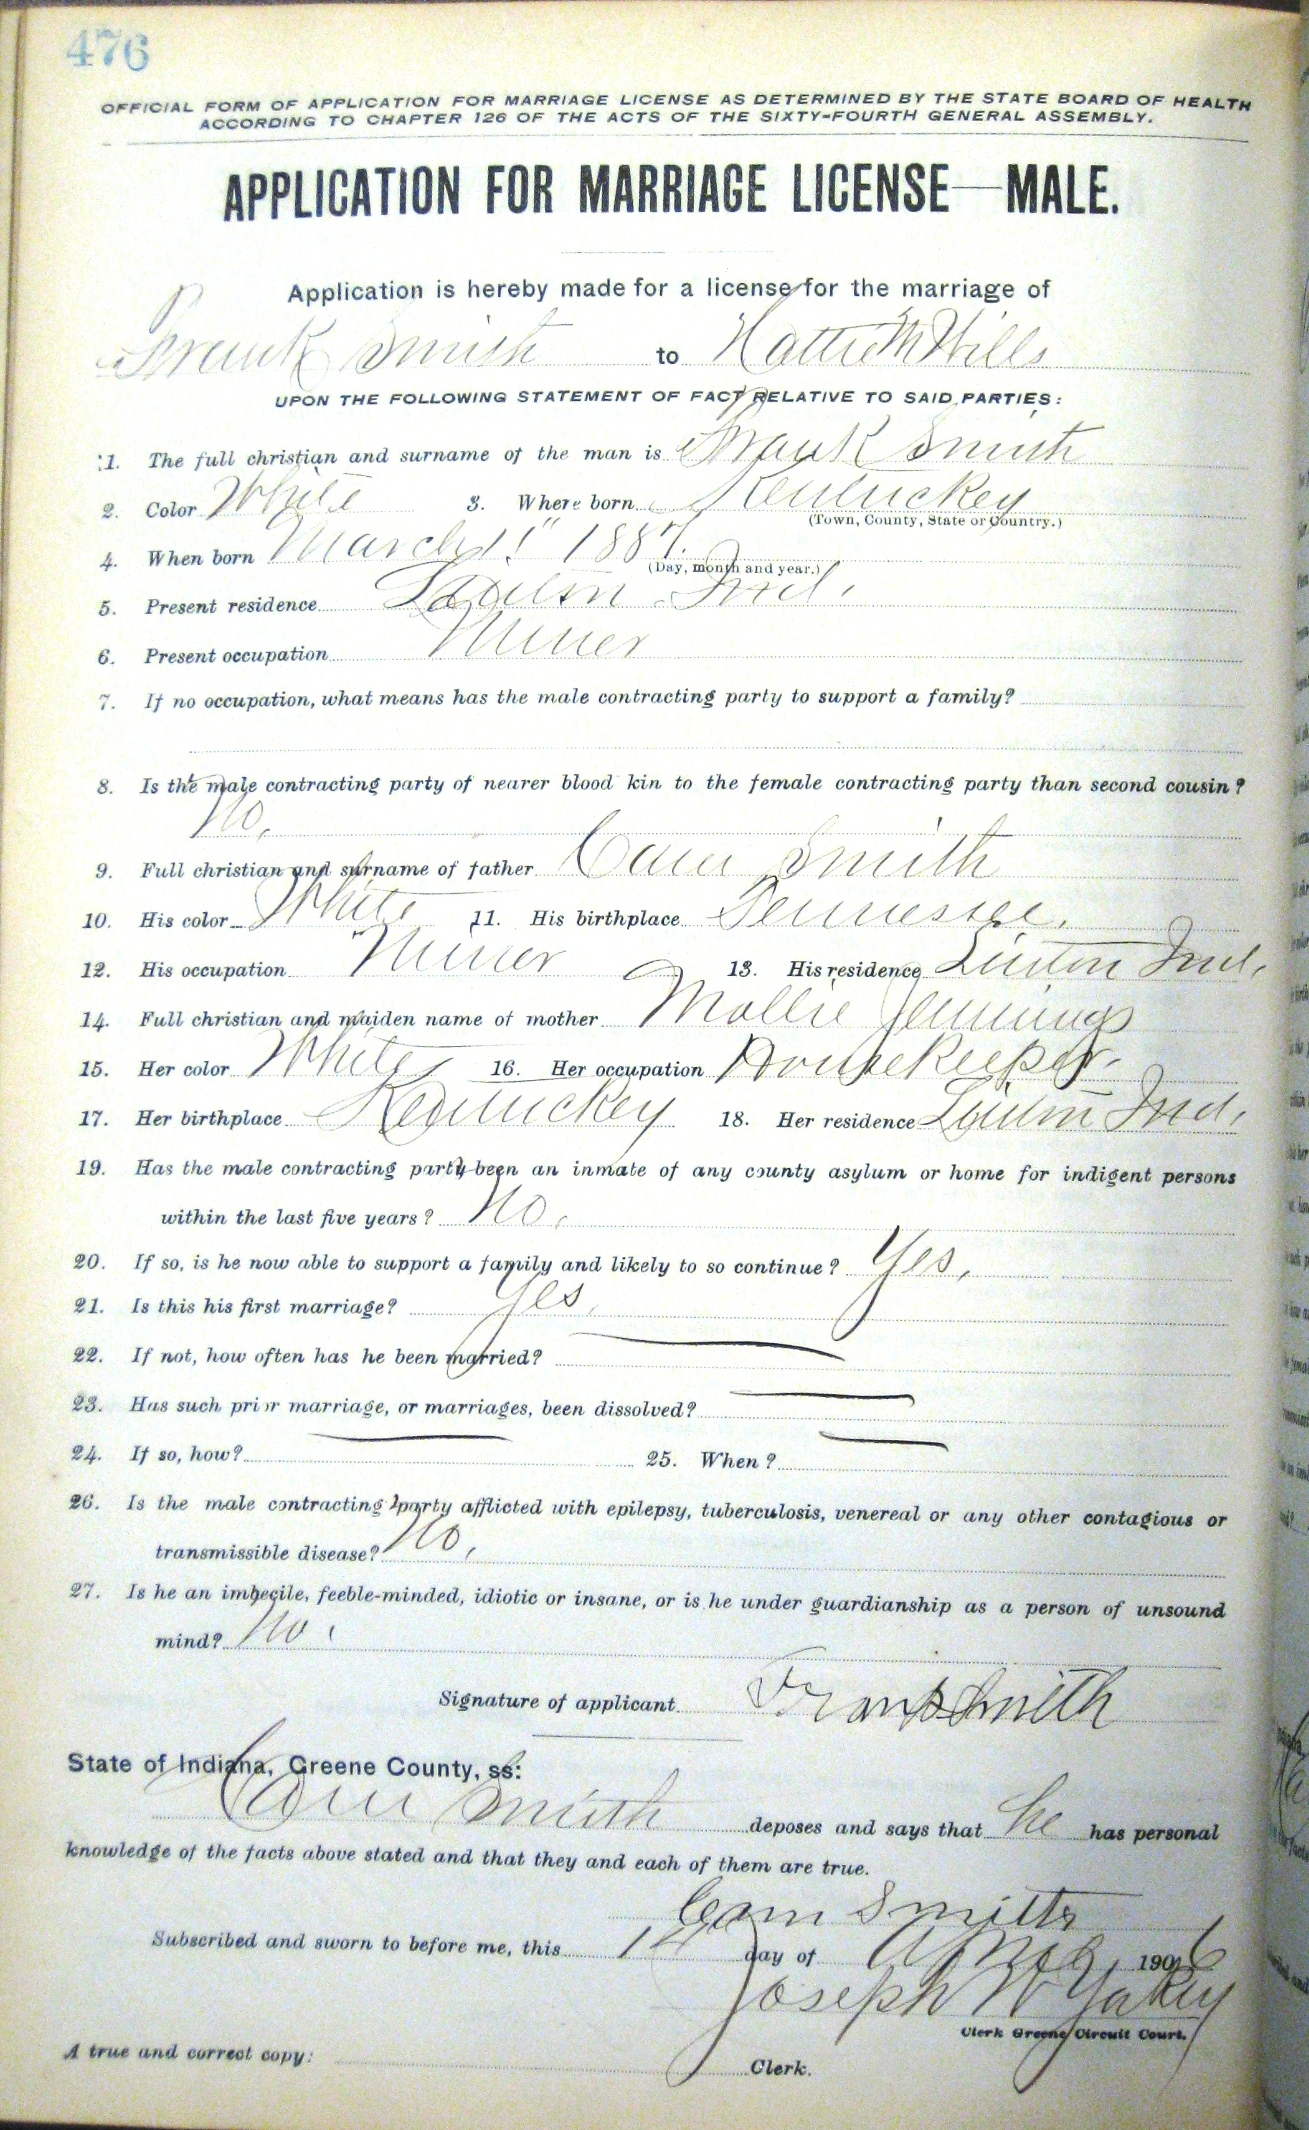 476
OFFICIAL FORM OF APPLICATION FOR MARRIAGE LICENSE AS DETERMINED BY THE STATE BOARD OF HEALTH
ACCORDING TO CHAPTER 126 OF THE ACTS OF THE SIXTY-FOURTH GENERAL ASSEMBLY.
APPLICATION FOR MARRIAGE LICENSE—MALE.
Application is hereby made for a license for the marriage of
Frank Smith to Hattie M Hills
UPON THE FOLLOWING STATEMENT OF FACT RELATIVE TO SAID PARTIES:
1. The full christian and surname of the man is Frank Smith
2. Color White 3. Where born Kentuckey
(Town, County, State or Country.)
4. When born March 1887.
(Day, month and year.)
5. Present residence Linton Ind.
6. Present occupation Miner
7. If no occupation, what means has the male contracting party to support a family?
8. Is the male contracting party of nearer blood kin to the female contracting party than second cousin?
No.
9. Full christian and surname of father Cam Smith
10. His color White 11. His birthplace Tennessee.
12. His occupation Miner 13. His residence Linton Ind.
14. Full christian and maiden name of mother Mollie Jennings
15. Her color White 16. Her occupation Housekeeper.
17. Her birthplace Kentuckey 18. Her residence Linton Ind.
19. Has the male contracting party been an inmate of any county asylum or home for indigent persons
within the last five years? No.
20. If so, is he now able to support a family and likely to so continue? Yes.
21. Is this his first marriage? Yes.
22. If not, how often has he been married?
23. Has such prior marriage, or marriages, been dissolved?
24. If so, how? 25. When?
26. Is the male contracting party afflicted with epilepsy, tuberculosis, venereal or any other contagious or
transmissible disease? No.
27. Is he an imbecile, feeble-minded, idiotic or insane, or is he under guardianship as a person of unsound
mind? No.
Signature of applicant Frank Smith
State of Indiana, Greene County, ss:
Cam Smith deposes and says that he has personal
knowledge of the facts above stated and that they and each of them are true.
Cam Smith
Subscribed and sworn to before me, this day of April 1906
Joseph W Yakey
Clerk Greene Circuit Court.
A true and correct copy: Clerk.